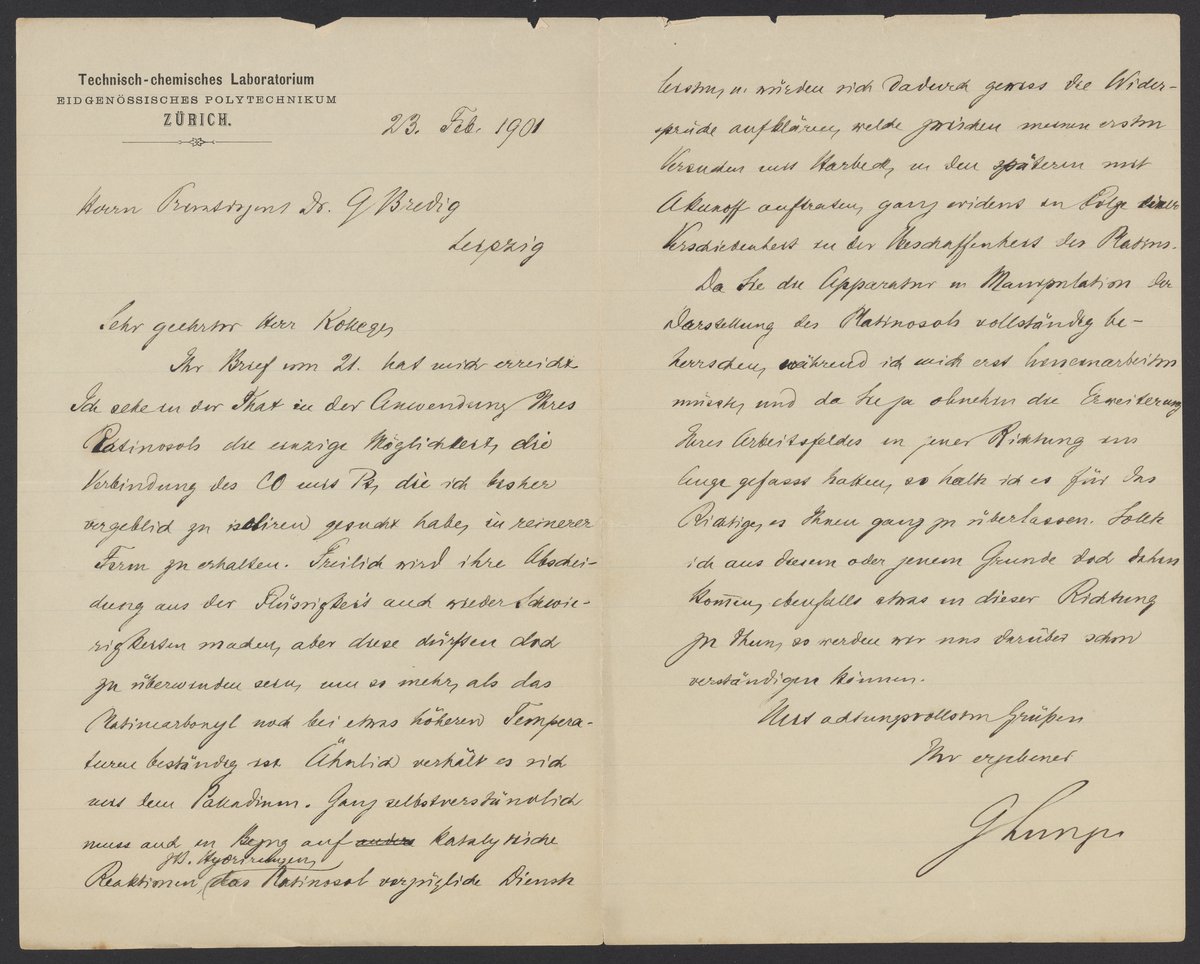 Technisch-chemisches Laboratorium
EIDGENÖSSISCHES POLYTECHNIKUM
ZÜRICH.
23. Feb. 1901
Herrn Privatdozent Dr. G Bredig
Leipzig
Sehr geehrter Herr Kollege,
Ihr Brief vom 21. hat mich erreicht.
Ich sehe in der That in der Anwendung Ihres
Platinosols die einzige Möglichkeit, die
Verbindung des CO mit Pt, die ich bisher
vergeblich zu isoliren gesucht habe, in reinerer
Form zu erhalten. Freilich wird ihre Abschei-
dung aus der Flüssigkeit auch wieder Schwie-
rigkeiten machen, aber diese dürften doch
zu überwinden sein, um so mehr, als das
Platincarbonyl noch bei etwas höheren Tempera-
turen beständig ist. Ähnlich verhält es sich
mit dem Palladium. Ganz selbstverständlich
muss auch in Bezug auf andere katalytische
zB. Hydrirungen,
Reaktionen, das Platinosol vorzügliche Dienste
leisten, u. würden sich dadurch gewiss die Wider-
sprüche aufklären, welche zwischen meinen ersten
Versuchen mit Harbeck, u. den späteren mit
Akunoff auftraten, ganz evident in Folge einer
Verschiedenheit in der Beschaffenheit des Platins.
Da Sie die Apparatur u. Manipulation der
Darstellung des Platinosols vollständig be-
herrschen, während ich mich erst hineinarbeiten
müsste, und da Sie ja ohnehin die Erweiterung
Ihres Arbeitsfeldes in jener Richtung ins
Auge gefasst hatten, so halte ich es für das
Richtige, es Ihnen ganz zu überlassen. Sollte
ich aus diesem oder jenem Grunde doch dahin
kommen, ebenfalls etwas in dieser Richtung
zu thun, so werden wir uns darüber schon
verständigen können.
Mit achtungsvollsten Grüßen
Ihr ergebener
G Lunge